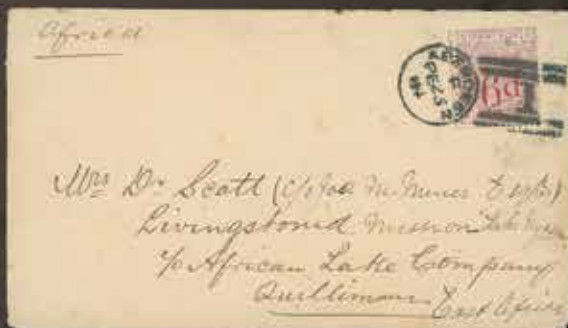 Africa
ABERDEEN
84
6d
Mrs Dr Scott (c/o
Livingstonia Mission
c/o African Lake Company
Quillimane East Africa